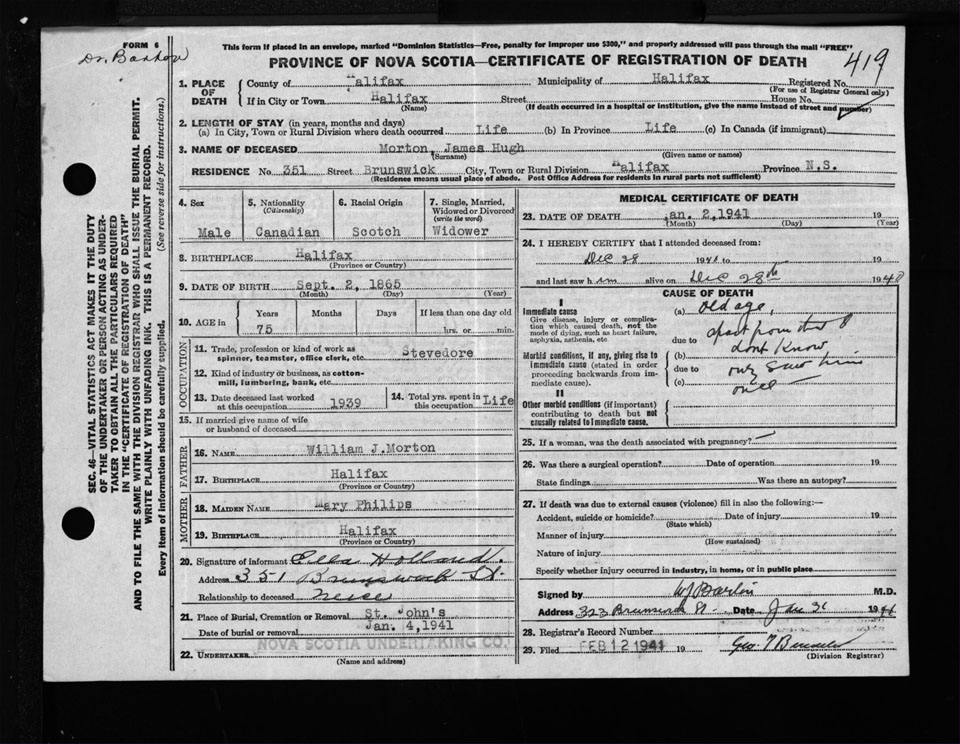 FORM 6
Dr. Barton
419
This form if placed in an envelope, marked "Dominion Statistics—Free, penalty for improper use $300," and properly addressed will pass through the mail "FREE"
PROVINCE OF NOVA SCOTIA—CERTIFICATE OF REGISTRATION OF DEATH
1. PLACE OF DEATH
County of Halifax Municipality of Halifax Registered No.
(For use of Registrar General only)
If in City or Town Halifax Street House No.
(Name) (If death occurred in a hospital or institution, give the name instead of street and number)
2. LENGTH OF STAY (in years, months and days)
(a) In City, Town or Rural Division where death occurred Life (b) In Province Life (c) In Canada (if immigrant)
3. NAME OF DECEASED Morton, James Hugh
(Surname) (Given name or names)
RESIDENCE No. 351 Street Brunswick City, Town or Rural Division Halifax Province N.S.
(Residence means usual place of abode. Post Office Address for residents in rural parts not sufficient)
4. Sex
Male
5. Nationality
(Citizenship)
Canadian
6. Racial Origin
Scotch
7. Single, Married, Widowed or Divorced
(write the word)
Widower
8. BIRTHPLACE Halifax
(Province or Country)
9. DATE OF BIRTH Sept. 2, 1865
(Month) (Day) (Year)
10. AGE in
Years Months Days If less than one day old
75 hrs. or min.
OCCUPATION
11. Trade, profession or kind of work as spinner, teamster, office clerk, etc. Stevedore
12. Kind of industry or business, as cotton-mill, lumbering, bank, etc.
13. Date deceased last worked at this occupation 1939
14. Total yrs. spent in this occupation Life
15. If married give name of wife or husband of deceased
FATHER
16. NAME William J.Morton
17. BIRTHPLACE Halifax
(Province or Country)
MOTHER
18. MAIDEN NAME Mary Philips
19. BIRTHPLACE Halifax
(Province or Country)
20. Signature of informant Ella Holland.
Address 351 Brunswick St.
Relationship to deceased Neice
21. Place of Burial, Cremation or Removal St. John's
Date of burial or removal Jan. 4,1941
22. UNDERTAKER NOVA SCOTIA UNDERTAKING CO.
(Name and address)
MEDICAL CERTIFICATE OF DEATH
23. DATE OF DEATH Jan. 2,1941 19
(Month) (Day) (Year)
24. I HEREBY CERTIFY that I attended deceased from:
Dec 28 19 to 19
and last saw him alive on Dec 28th 1940
CAUSE OF DEATH
I
Immediate cause
Give disease, injury or complication which caused death, not the mode of dying, such as heart failure, asphyxia, asthenia, etc.
(a) old age,
due to apart from that I
dont know
Morbid conditions, if any, giving rise to immediate cause (stated in order proceeding backwards from immediate cause).
(b)
due to only saw him
(c) once
II
Other morbid conditions (if important) contributing to death but not causally related to immediate cause.
25. If a woman, was the death associated with pregnancy? —
26. Was there a surgical operation? Date of operation 19
State findings Was there an autopsy?
27. If death was due to external causes (violence) fill in also the following:—
Accident, suicide or homicide? Date of injury 19
(State which)
Manner of injury
(How sustained)
Nature of injury
Specify whether injury occurred in industry, in home, or in public place
Signed by WJ Barton M.D.
Address 323 Brunswick St. Date Jan 31 1941
28. Registrar's Record Number
29. Filed FEB 12 1941 19 Geo.
(Division Registrar)
SEC. 46—VITAL STATISTICS ACT MAKES IT THE DUTY
OF THE UNDERTAKER OR PERSON ACTING AS UNDER-
TAKER TO OBTAIN ALL THE PARTICULARS REQUIRED
IN THE "CERTIFICATE OF REGISTRATION OF DEATH"
AND TO FILE THE SAME WITH THE DIVISION REGISTRAR WHO SHALL ISSUE THE BURIAL PERMIT.
WRITE PLAINLY WITH UNFADING INK. THIS IS A PERMANENT RECORD.
Every item of information should be carefully supplied. (See reverse side for instructions.)